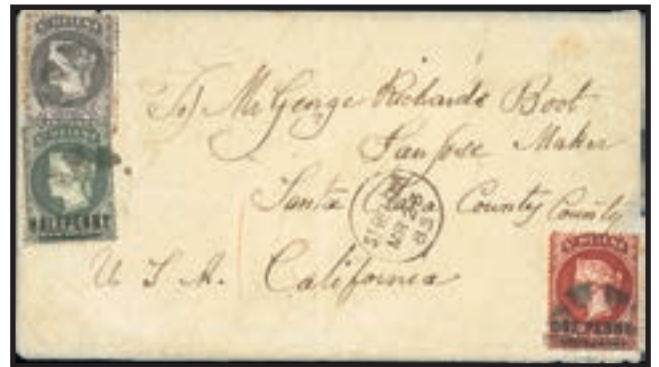 ST HELENA
ST HELENA
HALFPENNY
To Mr George Richards Boot
San Jose Maker
Santa Clara County County
U S A. California
ST HELENA
ONE PENNY